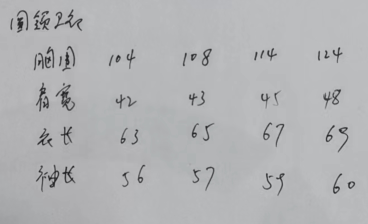 圆领卫衣
胸围 104 108 114 124
肩宽 42 43 45 48
衣长 63 65 67 69
袖长 56 57 59 60